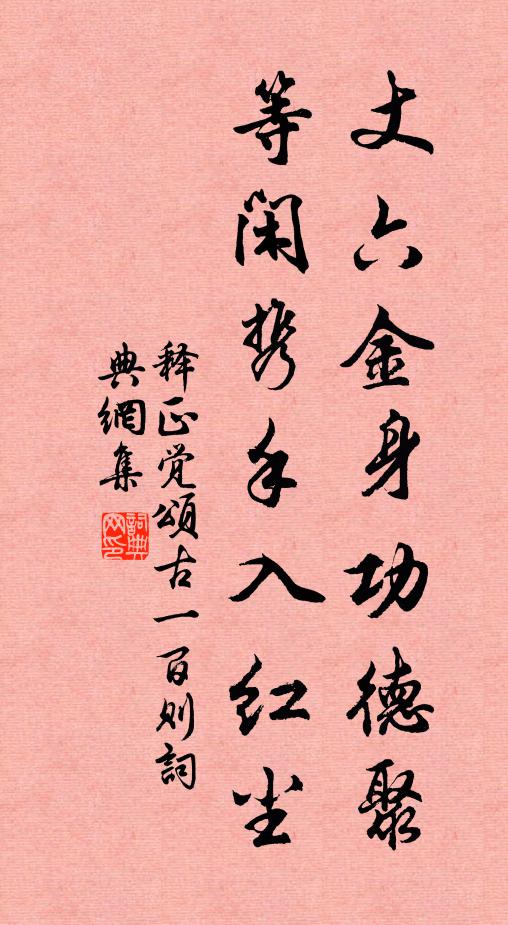 丈六金身功德聚
等闲携手入红尘
释正觉颂古一百则词
典網集
詞典网印